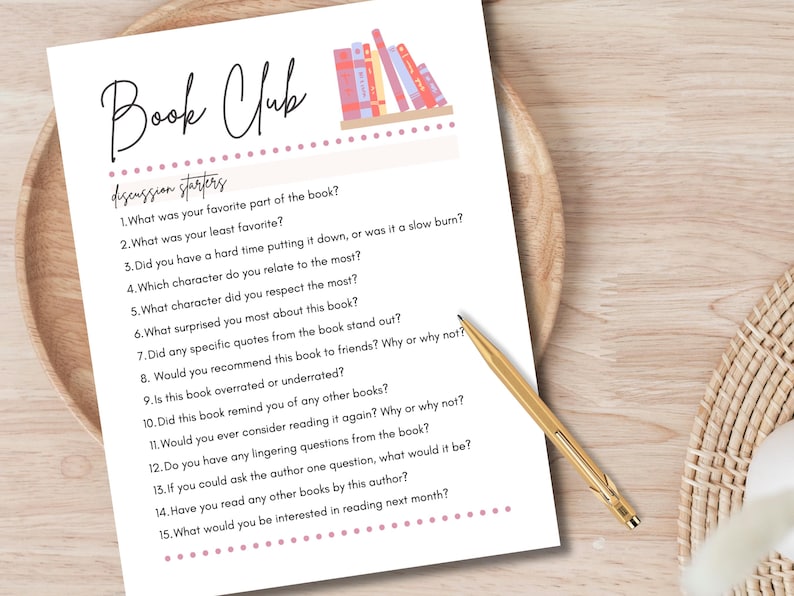 Book Club
discussion starters
1.What was your favorite part of the book?
2.What was your least favorite?
3.Did you have a hard time putting it down, or was it a slow burn?
4.Which character do you relate to the most?
5.What character did you respect the most?
6.What surprised you most about this book?
7.Did any specific quotes from the book stand out?
8. Would you recommend this book to friends? Why or why not?
9.Is this book overrated or underrated?
10.Did this book remind you of any other books?
11.Would you ever consider reading it again? Why or why not?
12.Do you have any lingering questions from the book?
13.If you could ask the author one question, what would it be?
14.Have you read any other books by this author?
15.What would you be interested in reading next month?